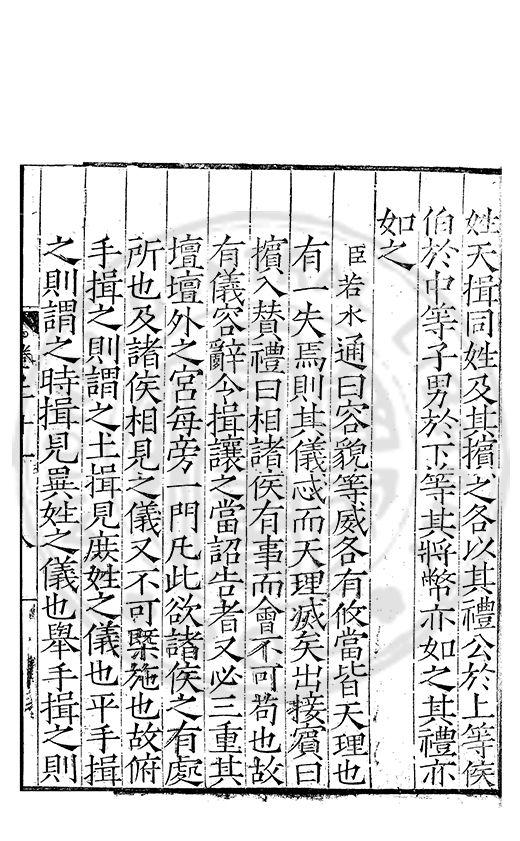 姓天揖同姓及其擯之各以其禮公於上等侯
伯於中等子男於下等其將幣亦如之其禮亦
如之
臣若水通曰容貌等威各有攸當皆天理也
有一失焉則其儀忒而天理滅矣出接賓曰
擯入贊禮曰相諸侯有事而會不可苟也故
有儀容辭令揖讓之當詔告者又必三重其
壇壇外之宮每旁一門凡此欲諸侯之有處
所也及諸侯相見之儀又不可槩施也故俯
手揖之則謂之土揖見庶姓之儀也平手揖
之則謂之時揖見異姓之儀也舉手揖之則